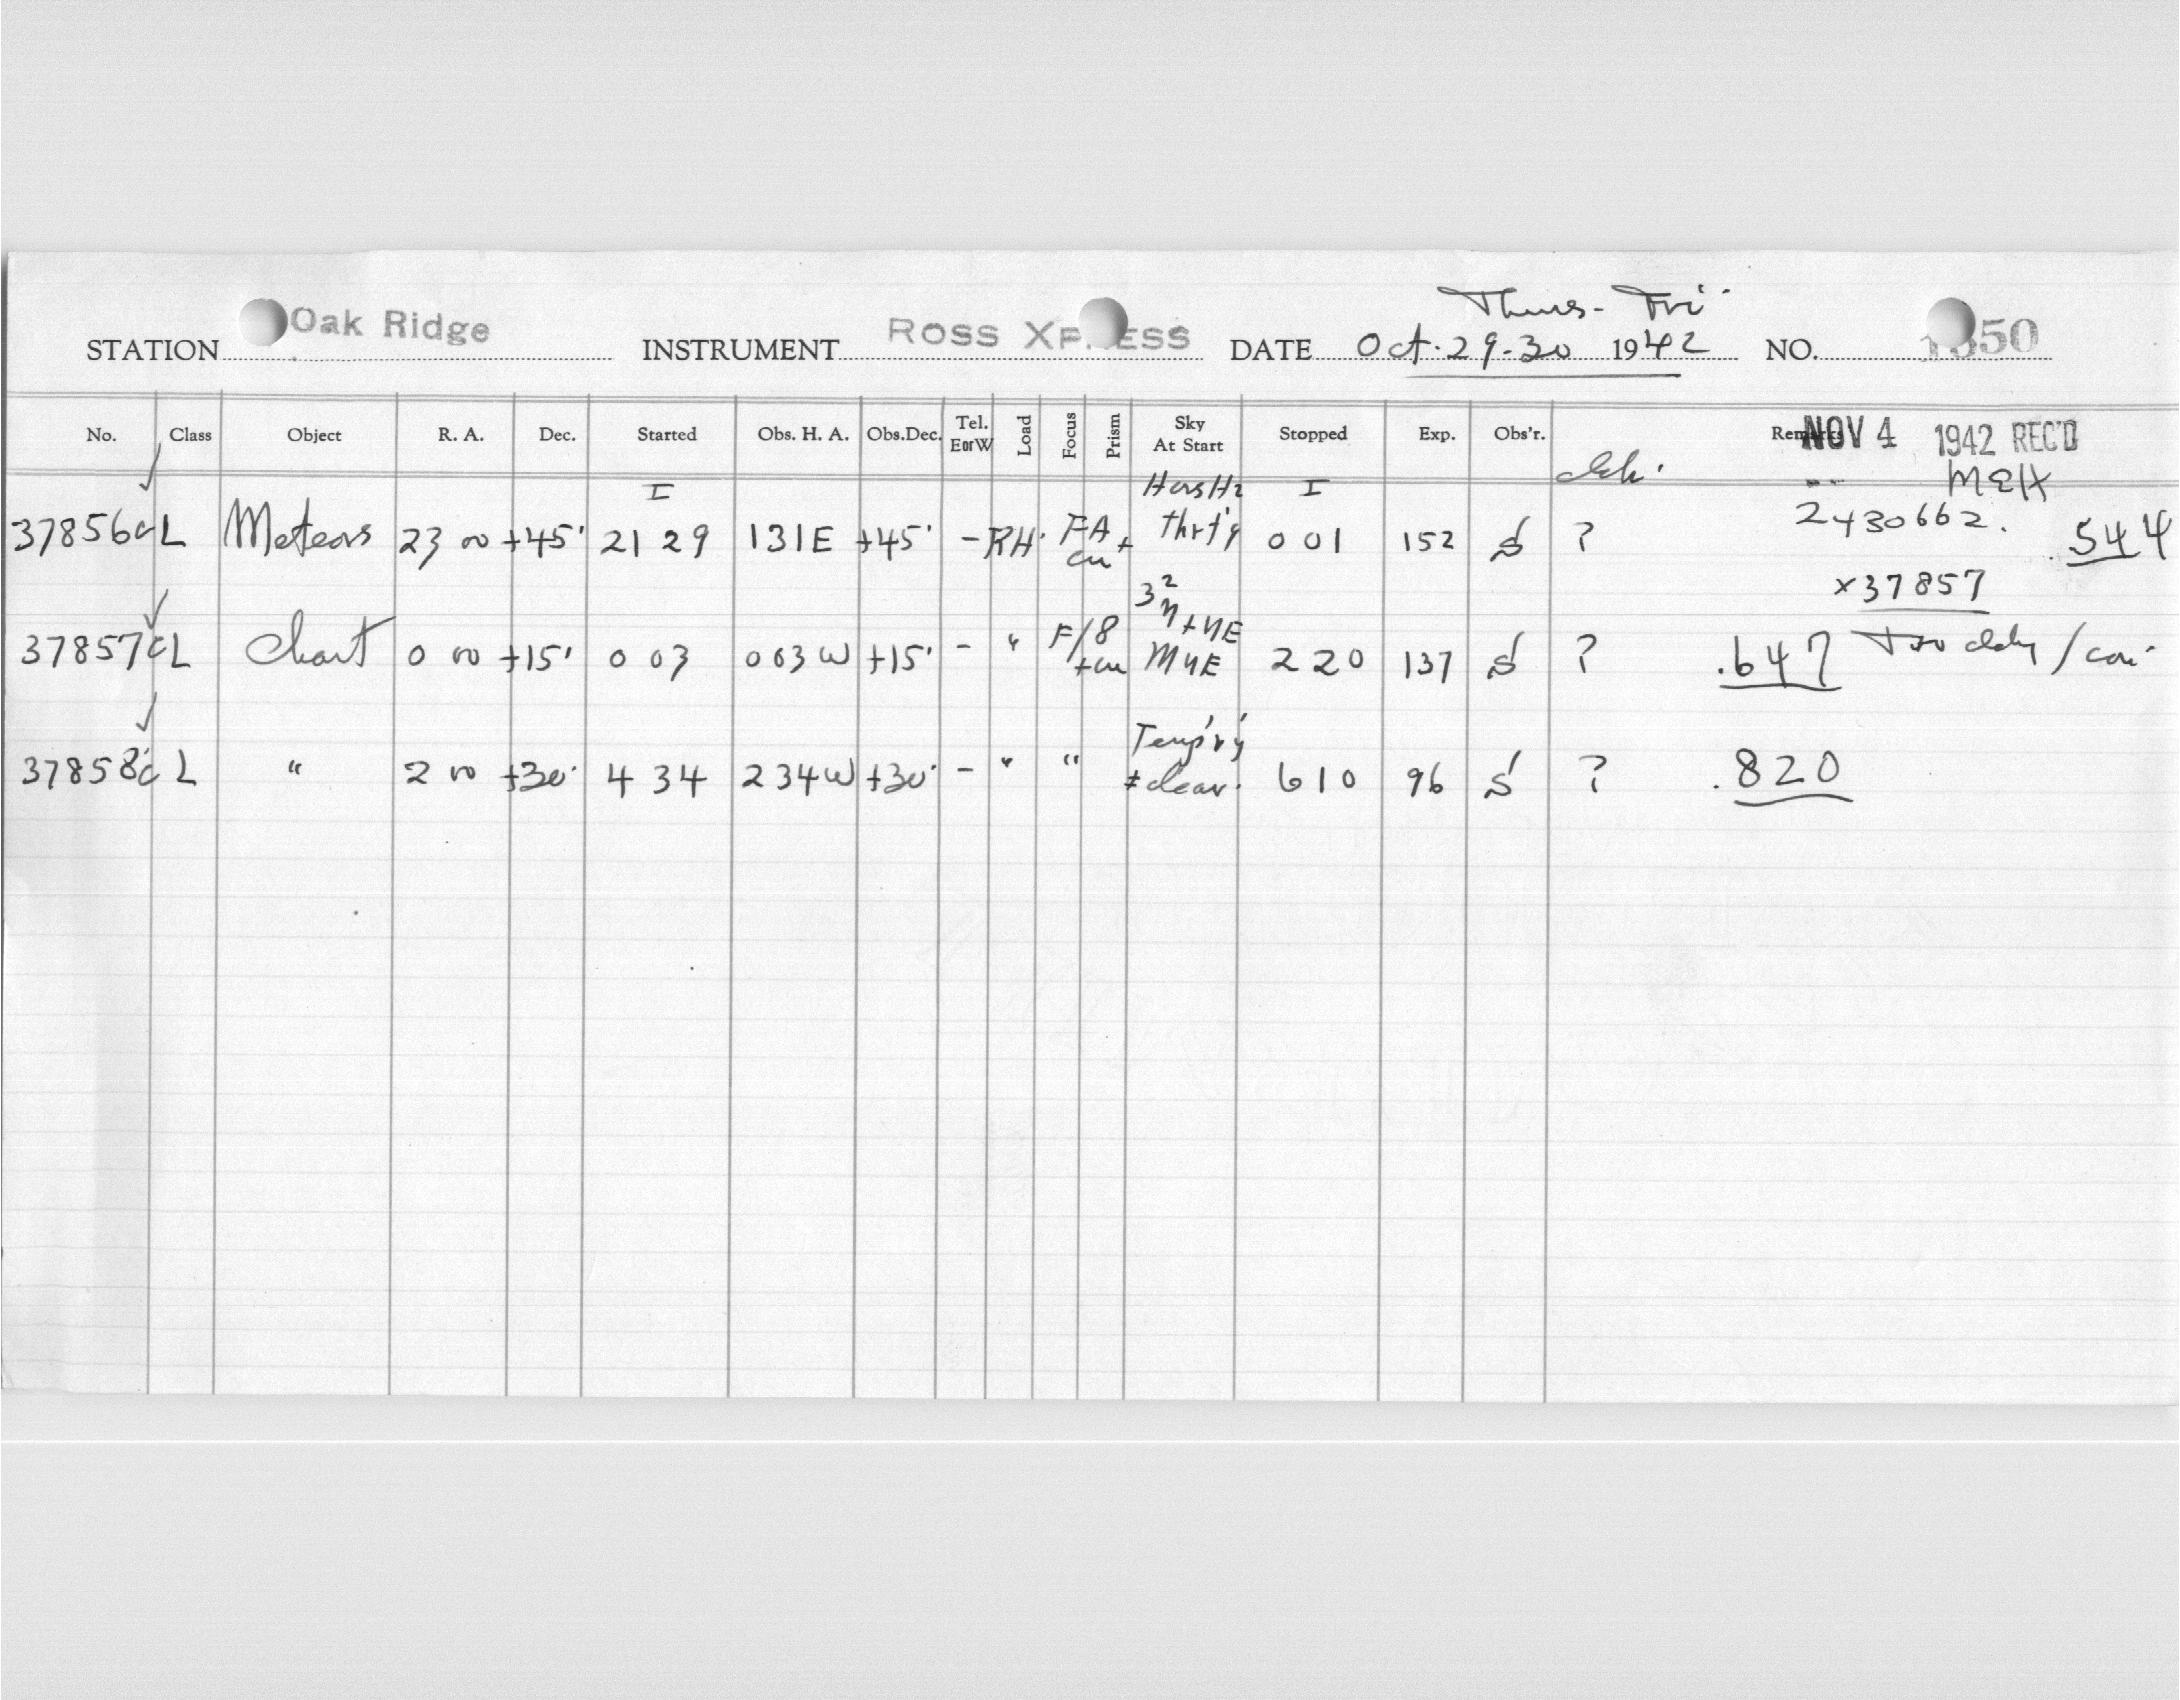 Thurs - Fri
STATION Oak Ridge INSTRUMENT ROSS XP ESS DATE Oct. 29-30 1942 NO. 1350
No. Class Object R. A. Dec. Started Obs. H. A. Obs.Dec. Tel. E or W Load Focus Prism Sky At Start Stopped Exp. Obs'r. Remarks NOV 4 1942 REC'D
MEH
I I
37856 c L Meteors 23 00 +45° 21 29 131E +45° - RH FA 0 01 152 S ? 2430662. .544
x37857
37857 c L Chart 0 00 +15° 0 03 003W +15° - " F/8 3² N+NE 2 20 137 S ? .647
37858 c L " 2 00 +30° 4 34 234W +30° - " " Temp'r'y ± clear. 6 10 96 S ? .820